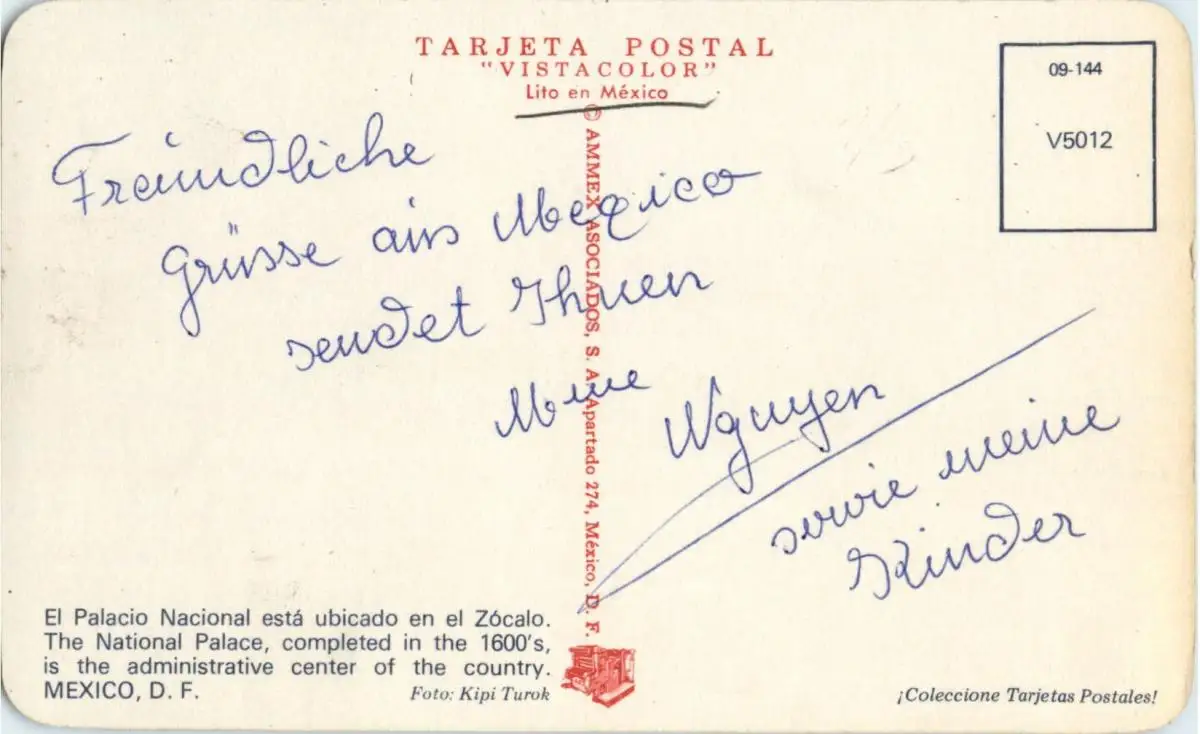 TARJETA POSTAL
"VISTACOLOR"
Lito en México
09-144
V5012
© AMMEX ASOCIADOS, S. A. Apartado 274, México, D. F.
Freundliche
Grüsse aus Mexico
sendet Ihnen
Mme Nguyen
sowie meine
Kinder
El Palacio Nacional está ubicado en el Zócalo.
The National Palace, completed in the 1600's,
is the administrative center of the country.
MEXICO, D. F.
Foto: Kipi Turok
¡Coleccione Tarjetas Postales!